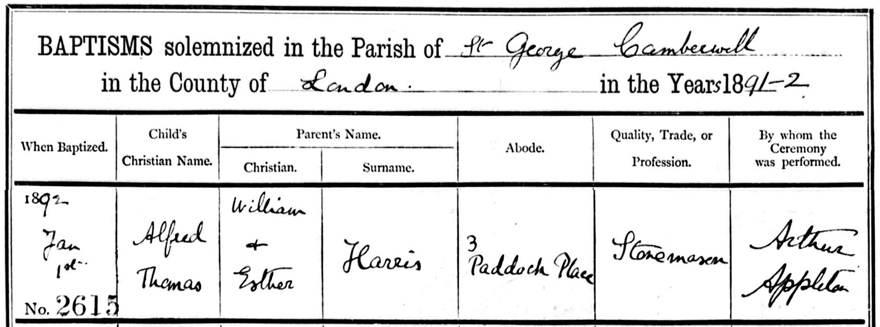 BAPTISMS solemnized in the Parish of St George Camberwell
in the County of London. in the Years 1891-2
When Baptized. Child's Christian Name. Parent's Name. Christian. Surname. Abode. Quality, Trade, or Profession. By whom the Ceremony was performed.
1892 William
Jan Alfred & Harris 3 Stonemason Arthur
1st Thomas Esther Paddock Place Appleton
No. 2615